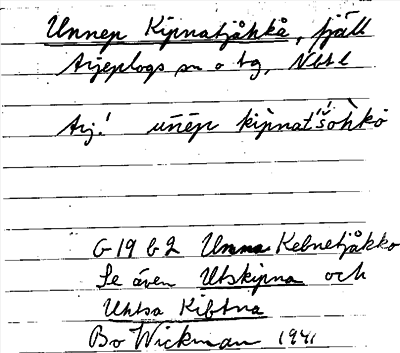 Unnep Kipnatjåhkå, fjäll
Arjeplogs sn o tg, Nbl l
Arj! unēp kipnat'šohko
G 19 b 2 Unna Kebnetjåkko
Se även Utskipna och
Uhtsa Kibtna
Bo Wickman 1941